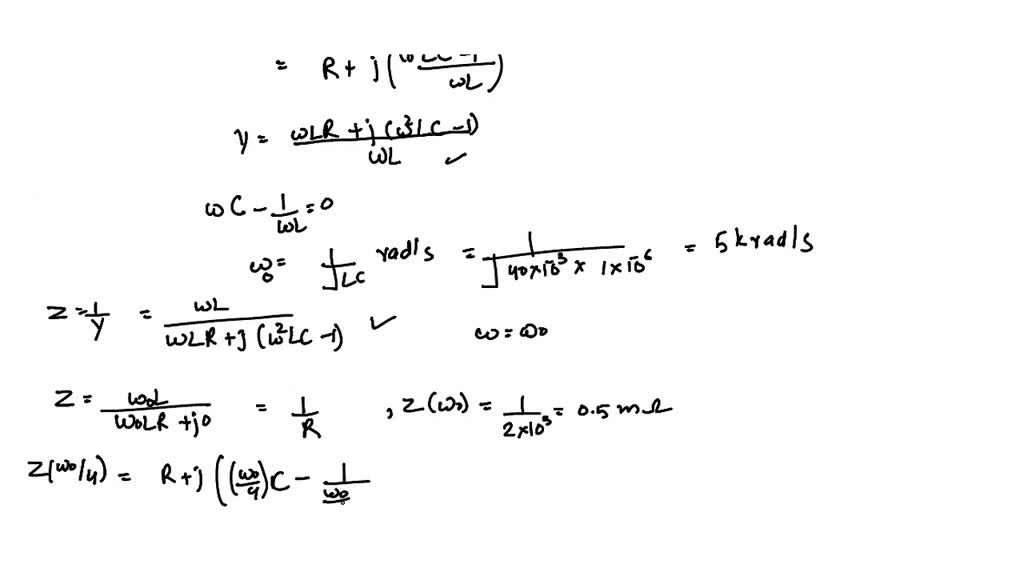 = R + j(ωLC-1 / ωL)
Y = ωLR + j(ω²LC-1) / ωL ✓
ωC - 1/ωL = 0
ω₀ = 1/√LC rad/s = 1/√40×10⁻³ × 1×10⁻⁶ = 5 krad/s
Z = 1/Y = ωL / ωLR + j(ω²LC-1) ✓ ω = ω₀
Z = ω₀L / ω₀LR + j0 = 1/R , Z(ω₀) = 1/2×10³ = 0.5 mΩ
Z(ω₀/4) = R + j((ω₀/4)C - 1/ω₀